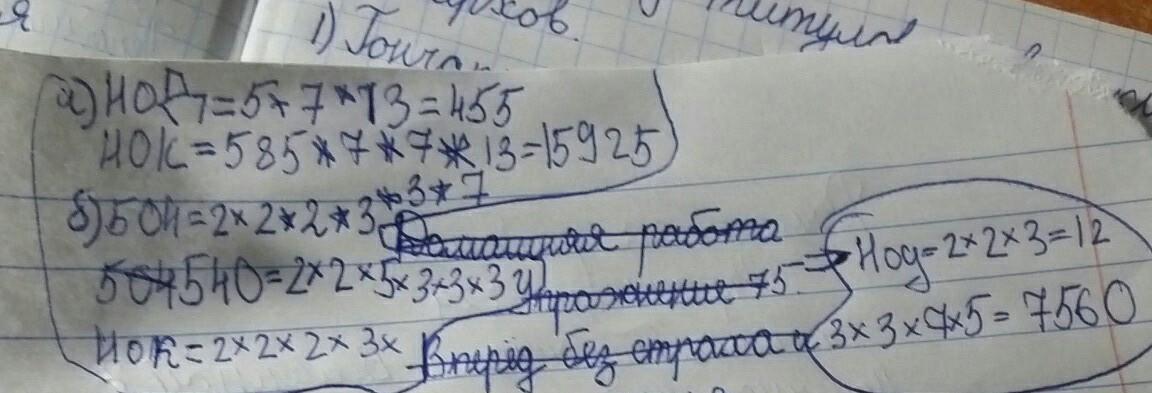 1) Гонча
а) НОД = 5 * 7 * 13 = 455
НОК = 585 * 7 * 7 * 13 = 15925
б) 504 = 2 * 2 * 2 * 3 * 3 * 7
Домашняя работа
504 540 = 2 * 2 * 5 * 3 * 3 * 3
Упражнение 75.
=> Нод = 2 * 2 * 3 = 12
НОК = 2 * 2 * 2 * 3 * 3 * 3 * 7 * 5 = 7560
Вперёд без страха и